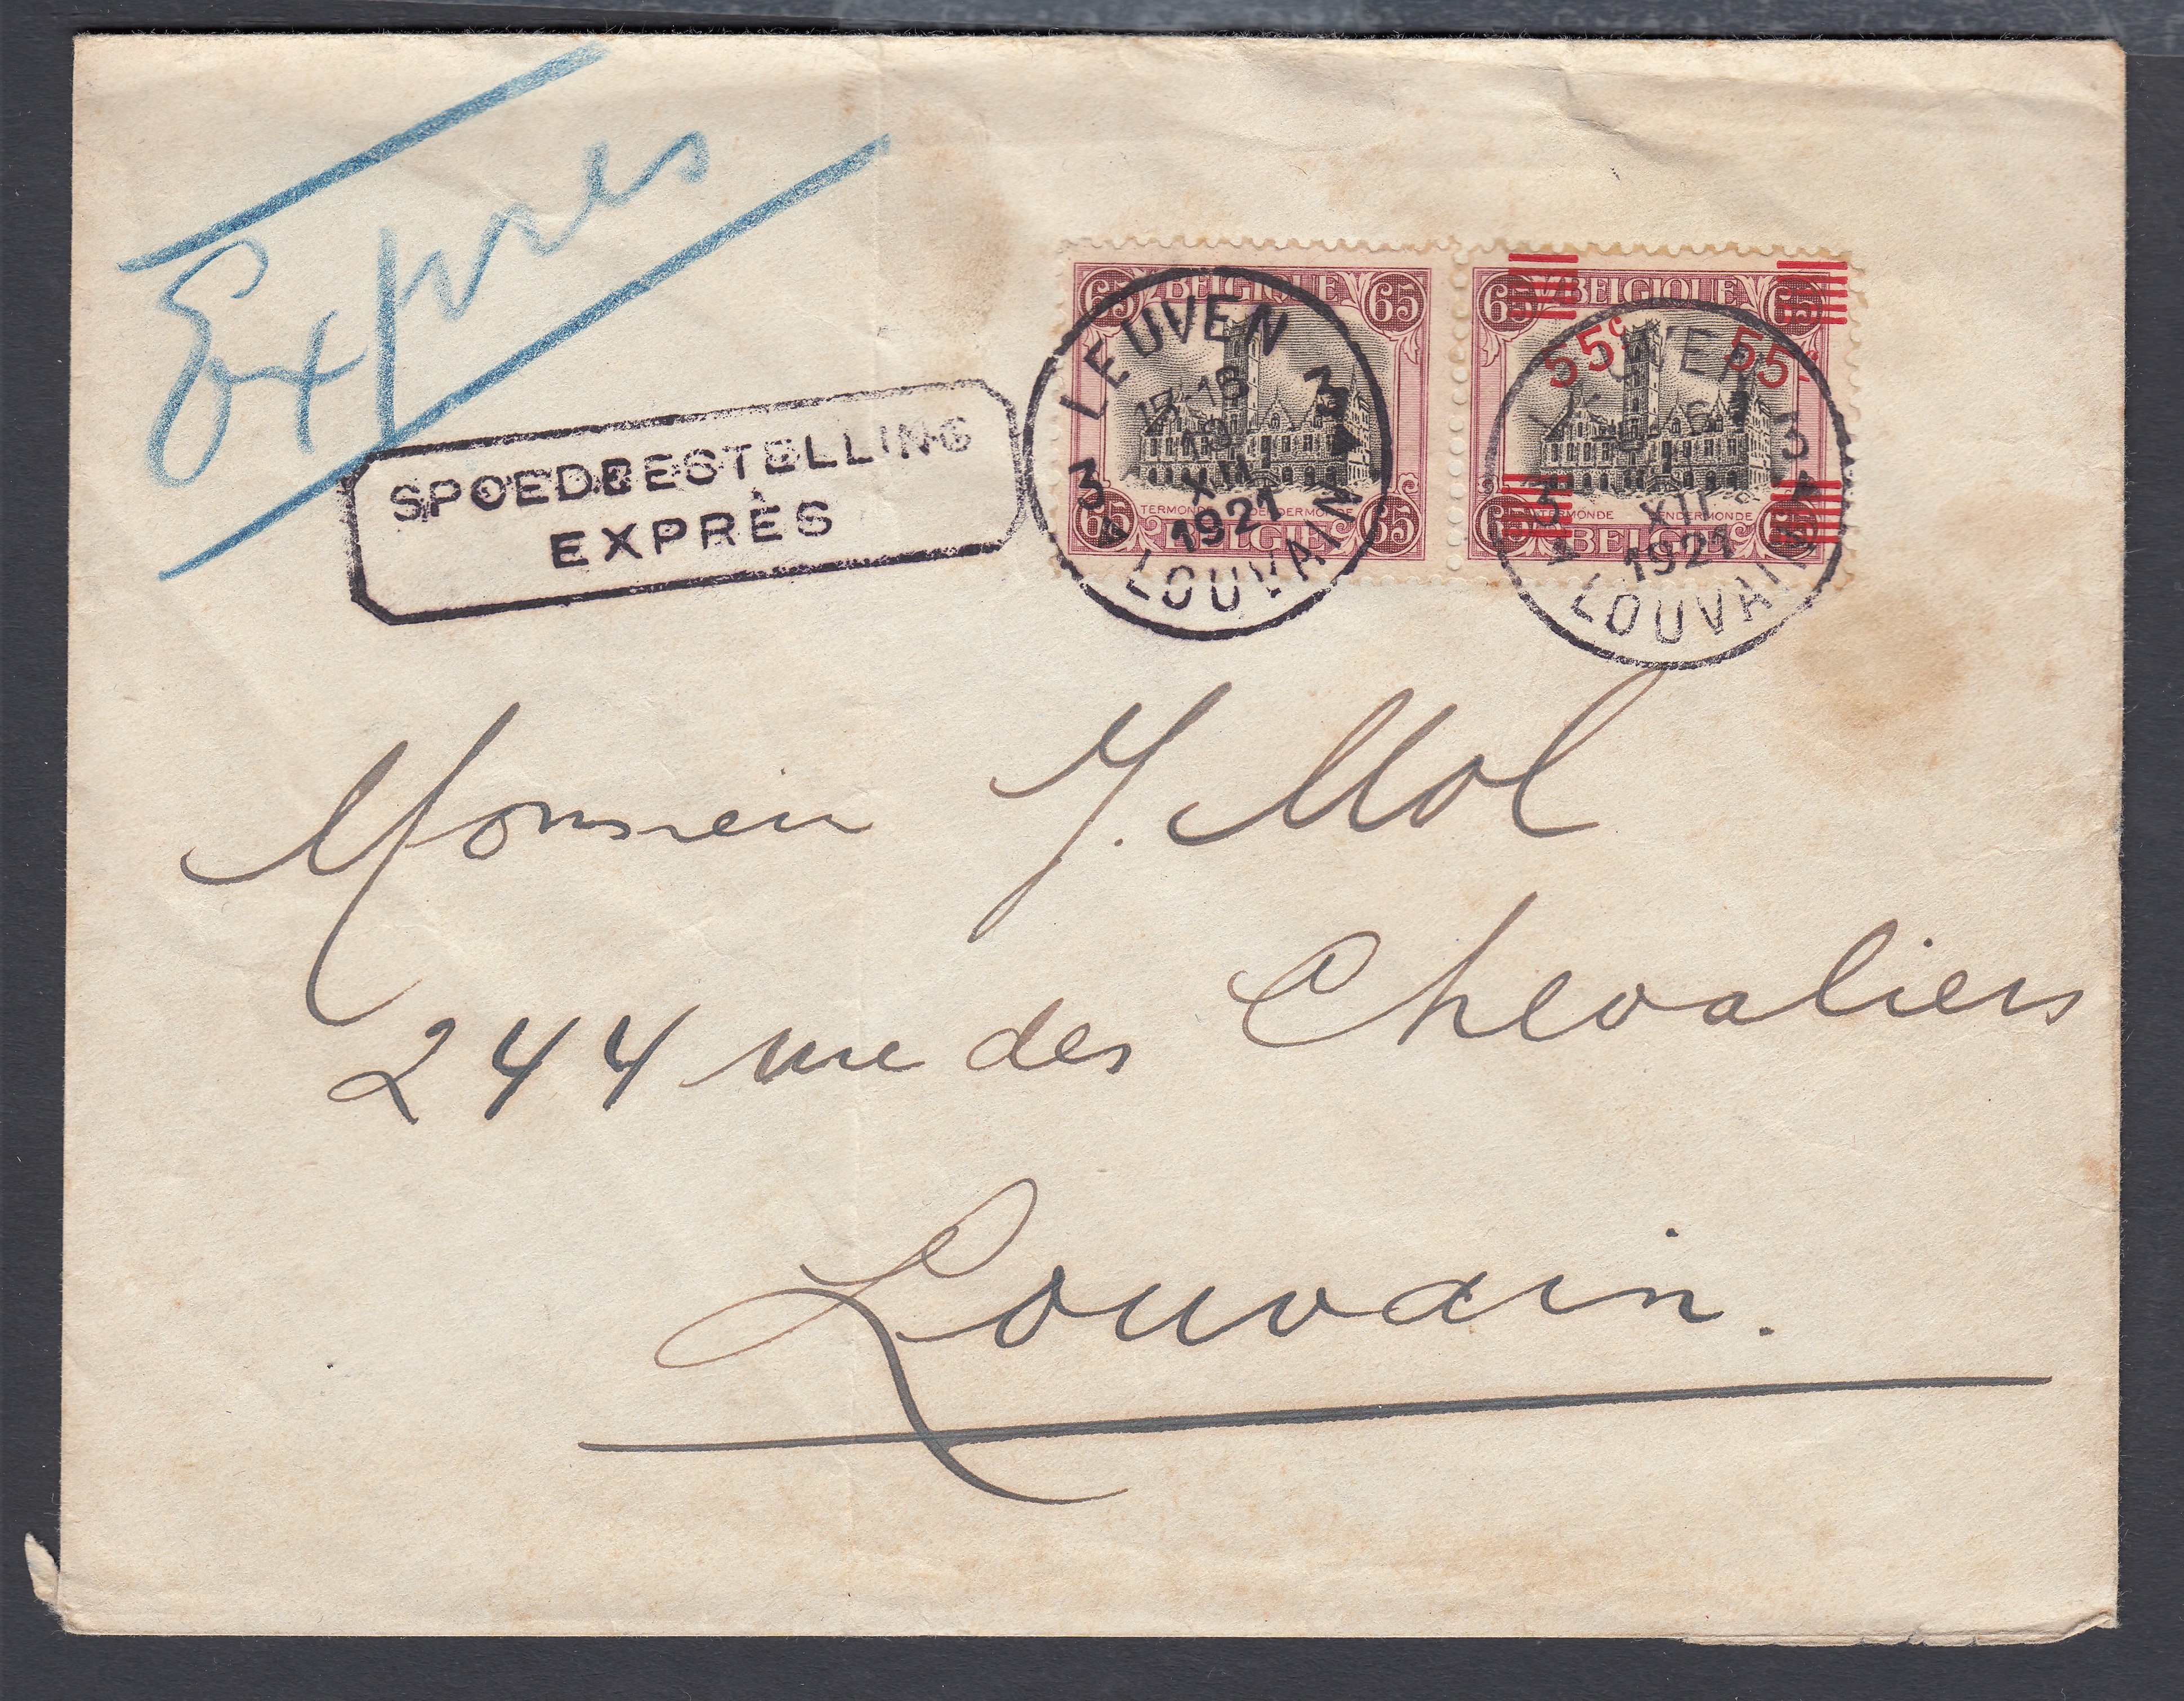 Expres
SPOEDBESTELLING
EXPRÈS
65 BELGIQUE 65
TERMONDE DENDERMONDE
65 BELGIË 65
LEUVEN
XII
1921
3A LOUVAIN 3A
65 BELGIQUE 65
55c 55c
TERMONDE DENDERMONDE
65 BELGIË 65
LEUVEN
XII
1921
3A LOUVAIN 3A
Monsieur J. Mol
244 rue des Chevaliers
Louvain.